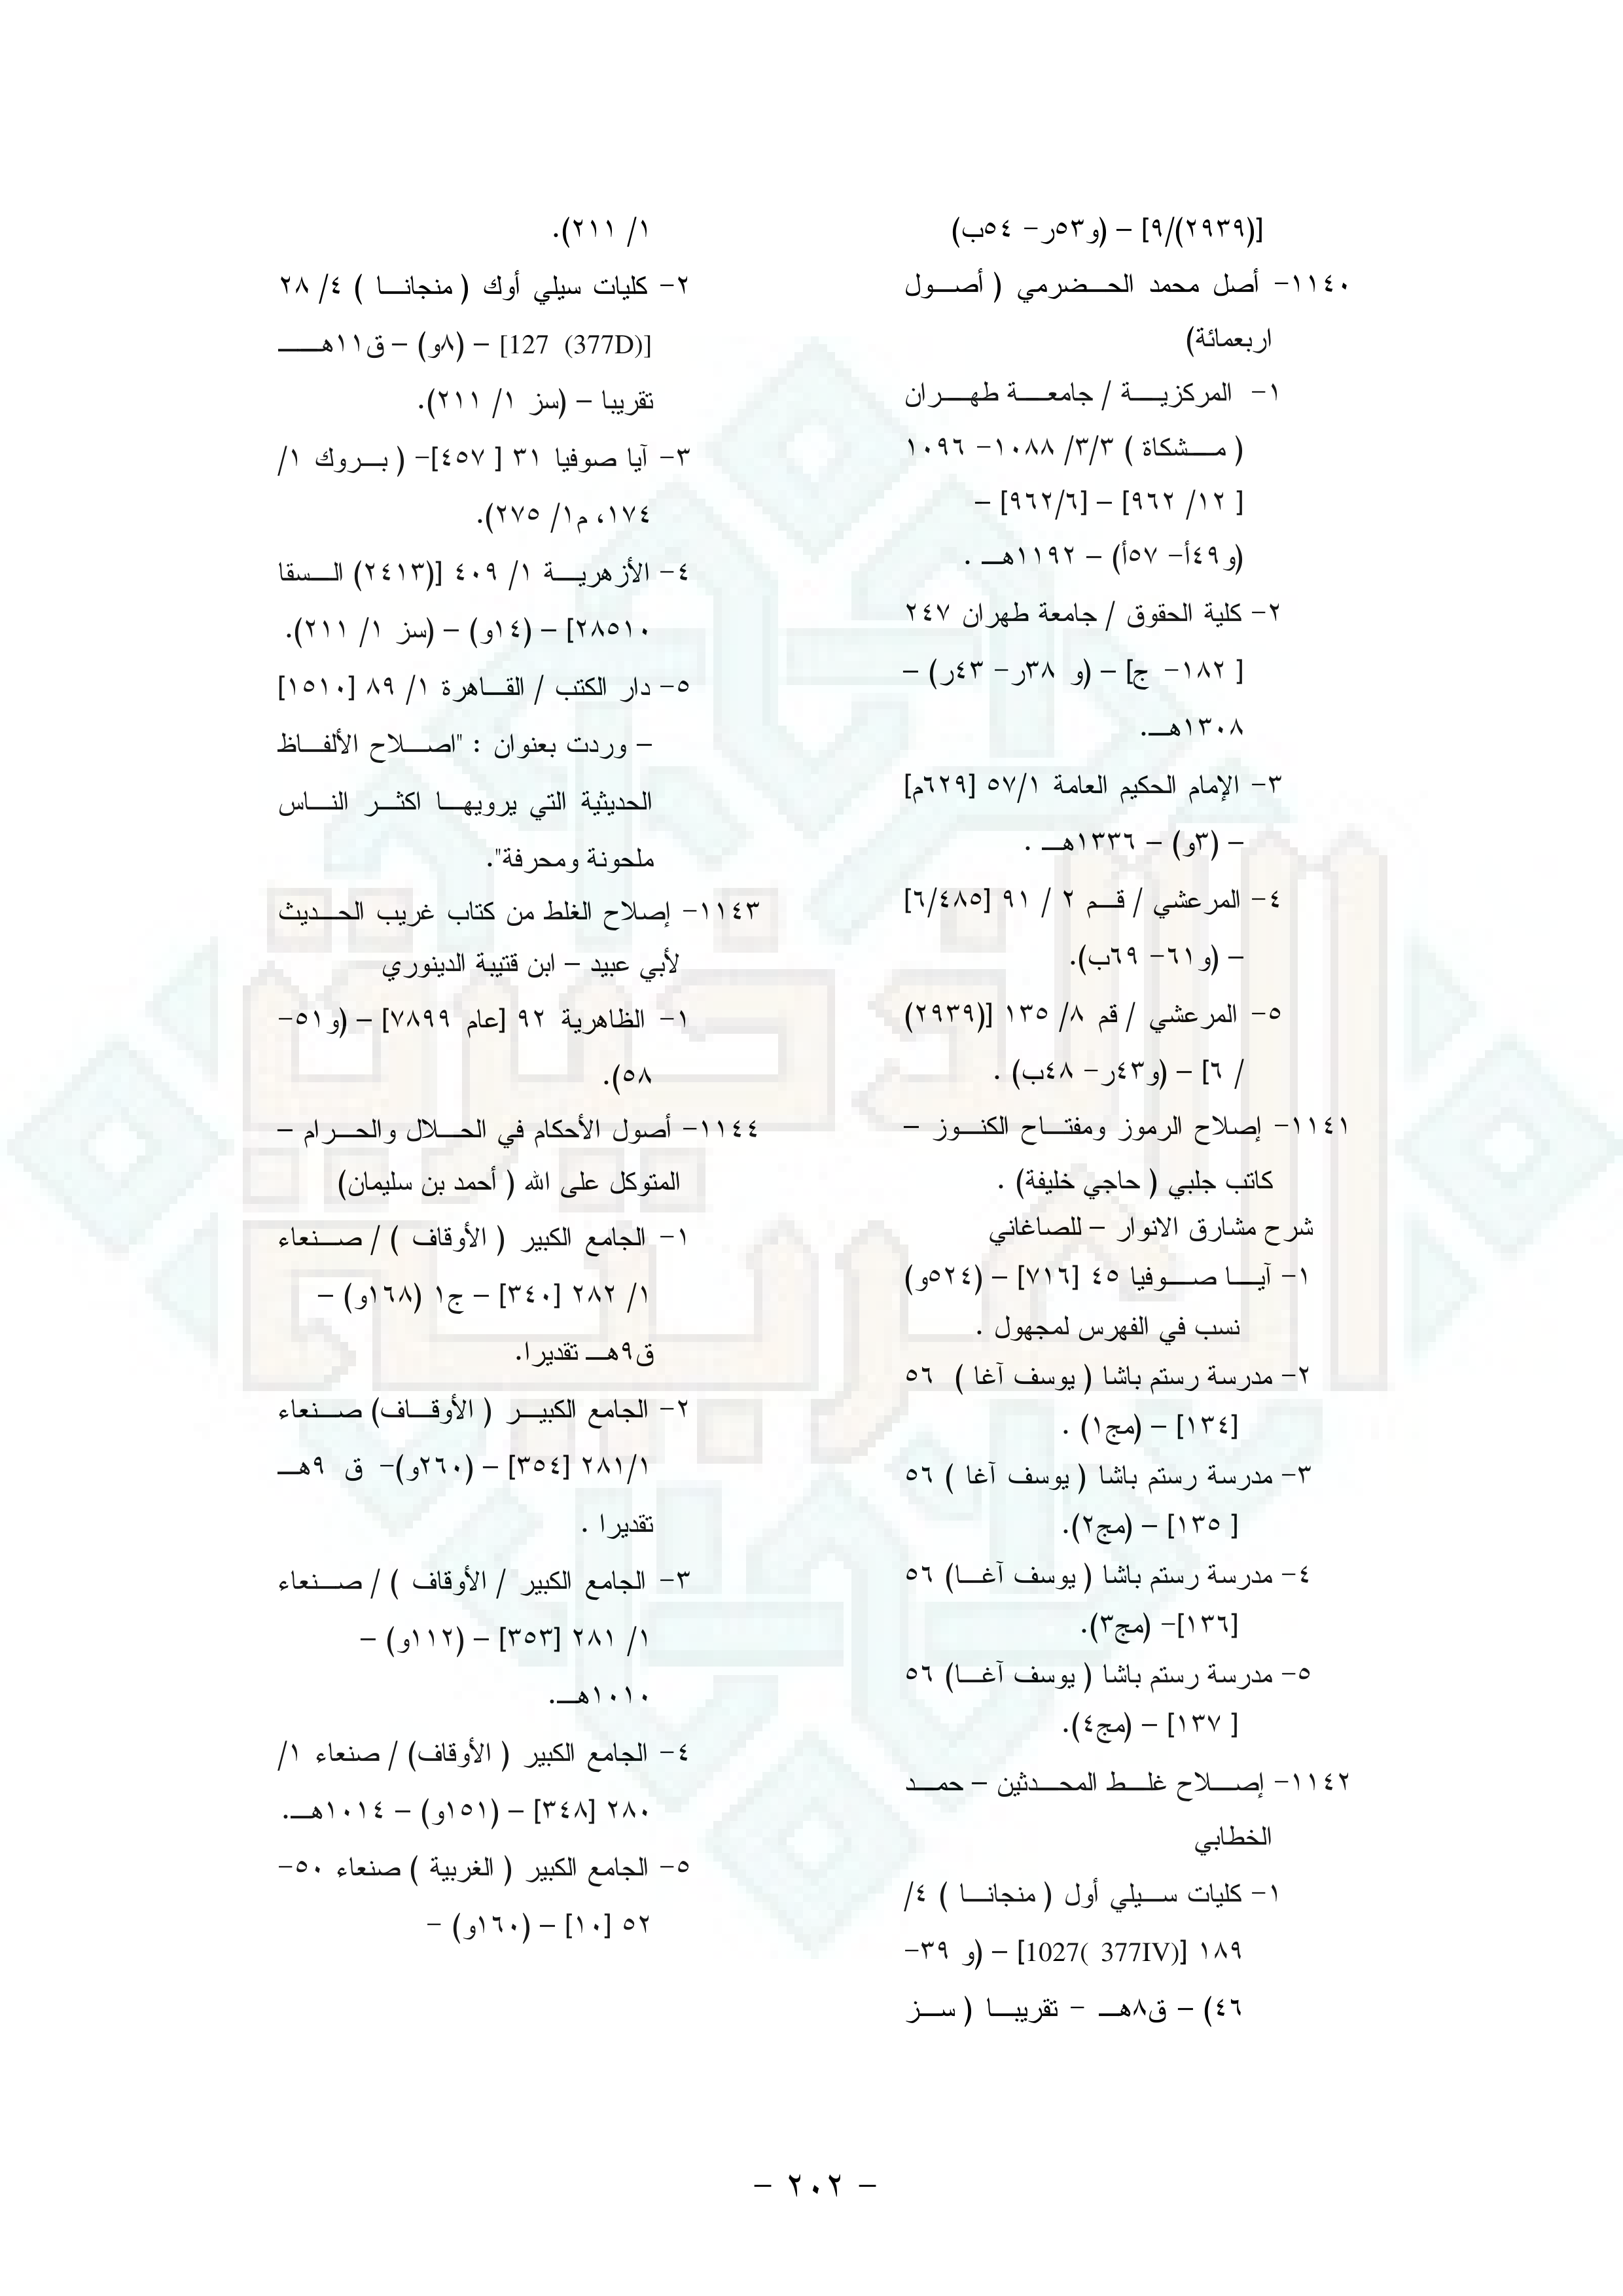 [(٢٩٣٩)/٩] – (و٥٣ر- ٥٤ب)
١١٤٠- أصل محمد الحضرمي ( أصول
اربعمائة)
١- المركزية / جامعة طهران
( مشكاة ) ٣/٣/ ١٠٨٨- ١٠٩٦
[ ١٢/ ٩٦٢] – [٩٦٢/٦] –
(و٤٩أ- ٥٧أ) – ١١٩٢هـ .
٢- كلية الحقوق / جامعة طهران ٢٤٧
[ ١٨٢- ج] – (و ٣٨ر- ٤٣ر) –
١٣٠٨هـ.
٣- الإمام الحكيم العامة ٥٧/١ [٦٢٩م]
– (٣و) – ١٣٣٦هـ .
٤- المرعشي / قم ٢ / ٩١ [٦/٤٨٥]
– (و٦١- ٦٩ب).
٥- المرعشي / قم ٨/ ١٣٥ [(٢٩٣٩)
/ ٦] – (و٤٣ر- ٤٨ب) .
١١٤١- إصلاح الرموز ومفتاح الكنوز –
كاتب جلبي ( حاجي خليفة) .
شرح مشارق الانوار – للصاغاني
١- آيا صوفيا ٤٥ [٧١٦] – (٥٢٤و)
نسب في الفهرس لمجهول .
٢- مدرسة رستم باشا ( يوسف آغا ) ٥٦
[١٣٤] – (مج١) .
٣- مدرسة رستم باشا ( يوسف آغا ) ٥٦
[ ١٣٥] – (مج٢).
٤- مدرسة رستم باشا ( يوسف آغا) ٥٦
[١٣٦]- (مج٣).
٥- مدرسة رستم باشا ( يوسف آغا) ٥٦
[ ١٣٧] – (مج٤).
١١٤٢- إصلاح غلط المحدثين – حمد
الخطابي
١- كليات سيلي أول ( منجانا ) ٤/
١٨٩ [1027( 377IV)] – (و ٣٩-
٤٦) – ق٨هـ - تقريبا ( سز
١/ ٢١١).
٢- كليات سيلي أوك ( منجانا ) ٤/ ٢٨
[127 (377D)] – (٨و) – ق١١هـ
تقريبا – (سز ١/ ٢١١).
٣- آيا صوفيا ٣١ [ ٤٥٧]- ( بروك ١/
١٧٤، م١/ ٢٧٥).
٤- الأزهرية ١/ ٤٠٩ [(٢٤١٣) السقا
٢٨٥١٠] – (١٤و) – (سز ١/ ٢١١).
٥- دار الكتب / القاهرة ١/ ٨٩ [١٥١٠]
– وردت بعنوان : "اصلاح الألفاظ
الحديثية التي يرويها اكثر الناس
ملحونة ومحرفة".
١١٤٣- إصلاح الغلط من كتاب غريب الحديث
لأبي عبيد – ابن قتيبة الدينوري
١- الظاهرية ٩٢ [عام ٧٨٩٩] – (و٥١-
٥٨).
١١٤٤- أصول الأحكام في الحلال والحرام –
المتوكل على الله ( أحمد بن سليمان)
١- الجامع الكبير ( الأوقاف ) / صنعاء
١/ ٢٨٢ [٣٤٠] – ج١ (١٦٨و) –
ق٩هـ تقديرا.
٢- الجامع الكبير ( الأوقاف) صنعاء
٢٨١/١ [٣٥٤] – (٢٦٠و)- ق ٩هـ
تقديرا .
٣- الجامع الكبير / الأوقاف ) / صنعاء
١/ ٢٨١ [٣٥٣] – (١١٢و) –
١٠١٠هـ.
٤- الجامع الكبير ( الأوقاف) / صنعاء ١/
٢٨٠ [٣٤٨] – (١٥١و) – ١٠١٤هـ.
٥- الجامع الكبير ( الغربية ) صنعاء ٥٠-
٥٢ [١٠] – (١٦٠و) -
– ٢٠٢ –